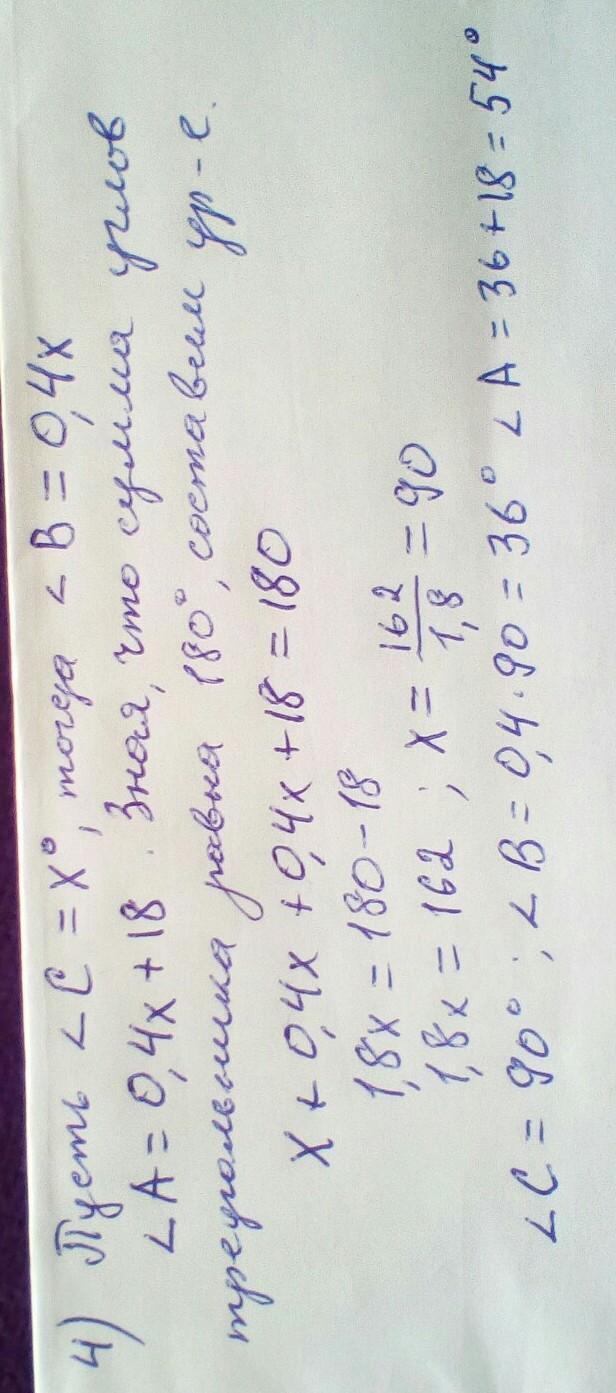 4) Пусть ∠C = x°, тогда ∠B = 0,4x
∠A = 0,4x + 18. Зная, что сумма углов
треугольника равна 180°, составим ур-е.
x + 0,4x + 0,4x + 18 = 180
1,8x = 180 - 18
1,8x = 162 ; x = 162/1,8 = 90
∠C = 90° ; ∠B = 0,4 · 90 = 36° ∠A = 36 + 18 = 54°